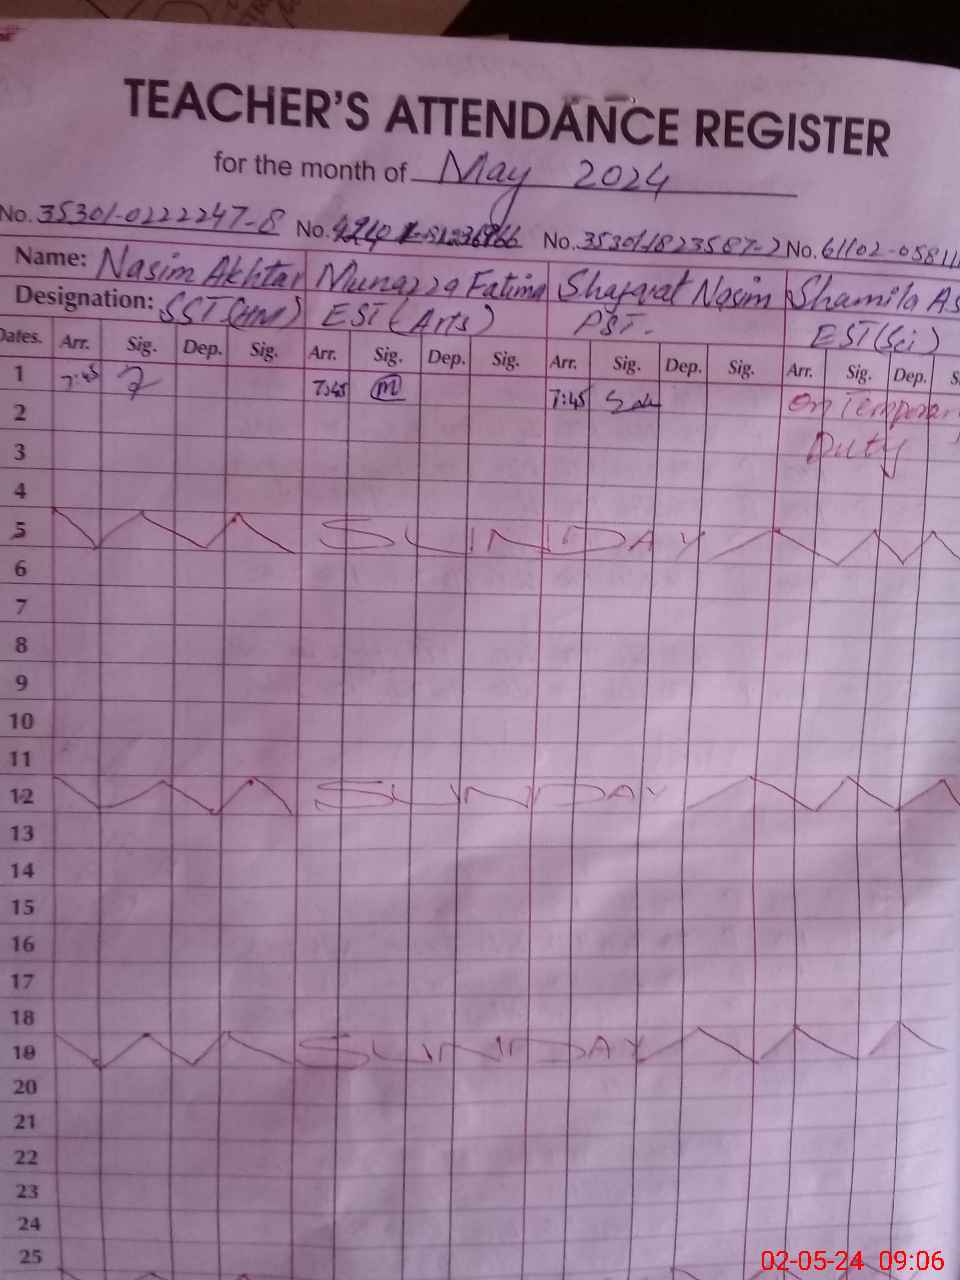 TEACHER'S ATTENDANCE REGISTER
for the month of May 2024
No. 35301-0222247-8 No. No. 35301-1823587-2 No. 61102-05811
Name: Nasim Akhtar Munazza Fatima Shajarat Nasim Shamila As
Designation: SST(HM) EST(Arts) PST. EST(Sci)
Dates. Arr. Sig. Dep. Sig. Arr. Sig. Dep. Sig. Arr. Sig. Dep. Sig. Arr. Sig. Dep. S
1 7:45 7:45 m 7:45 On Temporar
2
3 Duty
4
5 SUNDAY
6
7
8
9
10
11
12 SUNDAY
13
14
15
16
17
18
19 SUNDAY
20
21
22
23
24
25
02-05-24 09:06